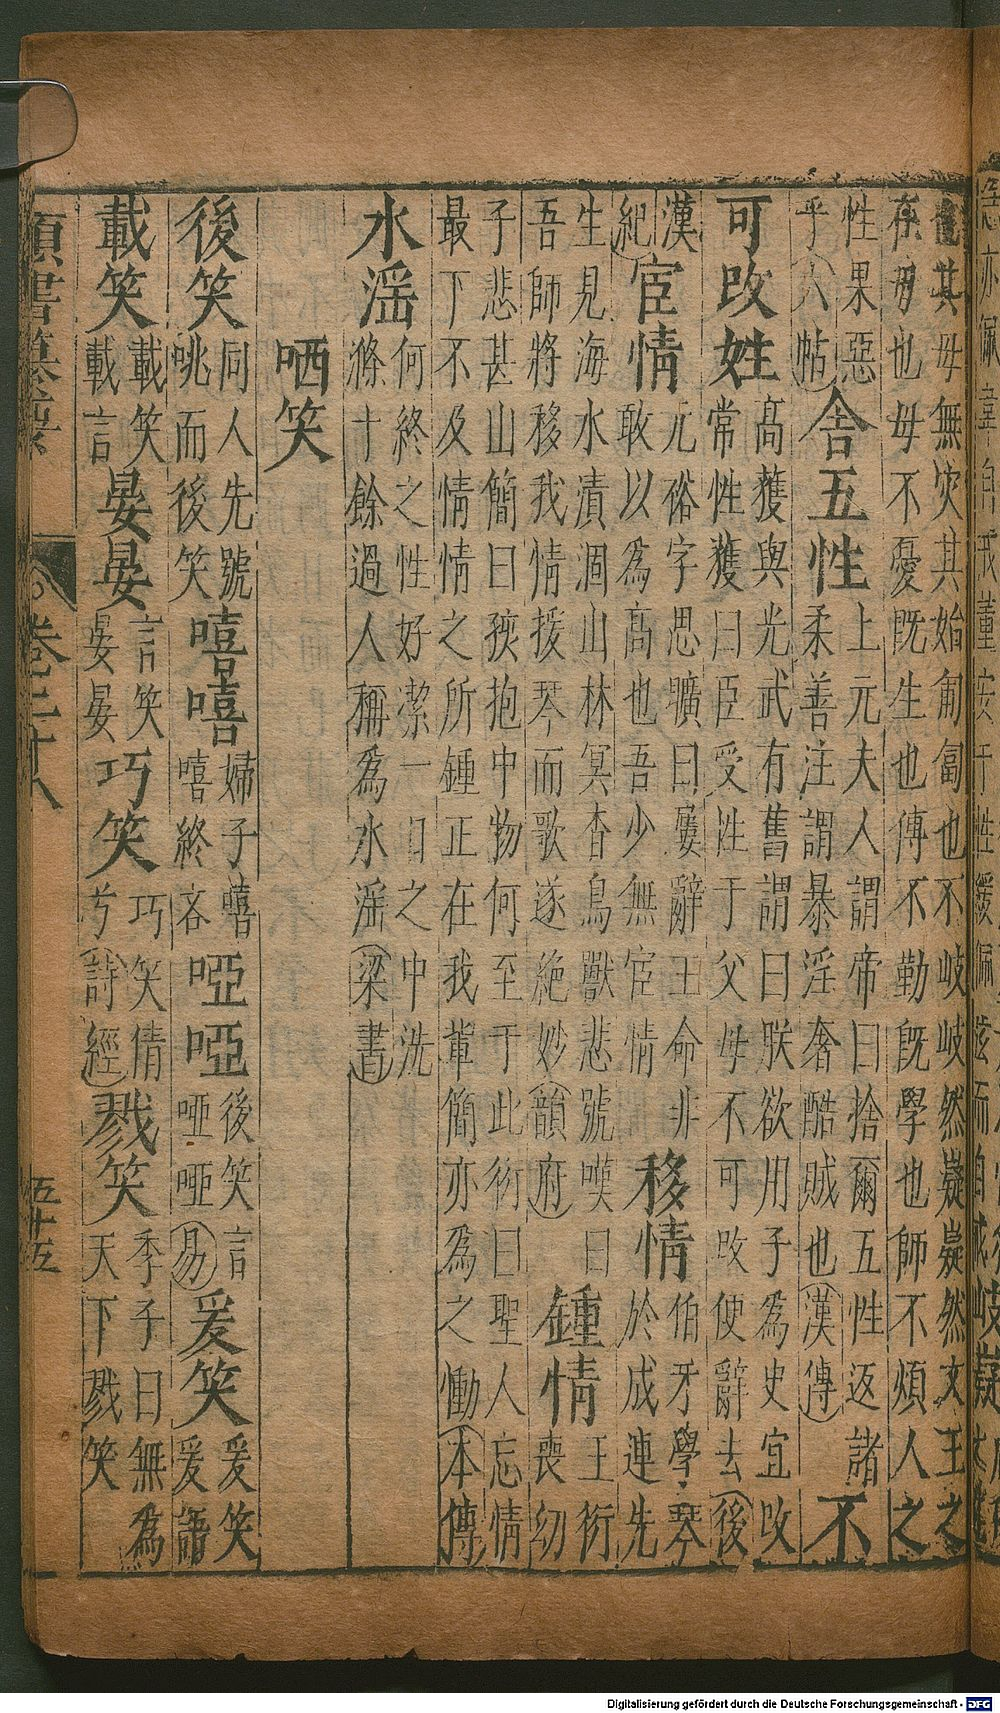 也其母無災其始匍匐也不岐岐然嶷嶷然文王之
在母也母不憂既生也傅不勤既學也師不煩人之
性果惡
乎六帖
舍五性
上元夫人謂帝曰捨爾五性返諸
柔善注謂暴淫奢酷賊也漢傳
不
可改姓
高獲與光武有舊謂曰朕欲用子為史宜改
常性獲曰臣受性于父母不可改便辭去後
漢
紀
宦情
元裕字思曠曰屢辭王命非
敢以為高也吾少無宦情
移情
伯牙學琴
於成連先
生見海水漬涸山林冥杳鳥獸悲號嘆曰
吾師將移我情援琴而歌遂絶妙韻府
鍾情
王衍
喪幼
子悲甚山簡曰孩抱中物何至于此衍曰聖人忘情
最下不及情情之所鍾正在我輩簡亦為之慟本傳
水淫
何終之性好潔一日之中洗
滌十餘過人稱為水淫梁書
哂笑
後笑
同人先號
咷而後笑
嘻嘻
婦子嘻
嘻終吝
啞啞
後笑言
啞啞易
爰笑
爰笑
爰語
載笑
載笑
載言
晏晏
言笑
晏晏
巧笑
巧笑倩
兮詩經
戮笑
季子曰無為
天下戮笑
類書纂要
卷二十八
五十五
Digitalisierung gefördert durch die Deutsche Forschungsgemeinschaft - DFG